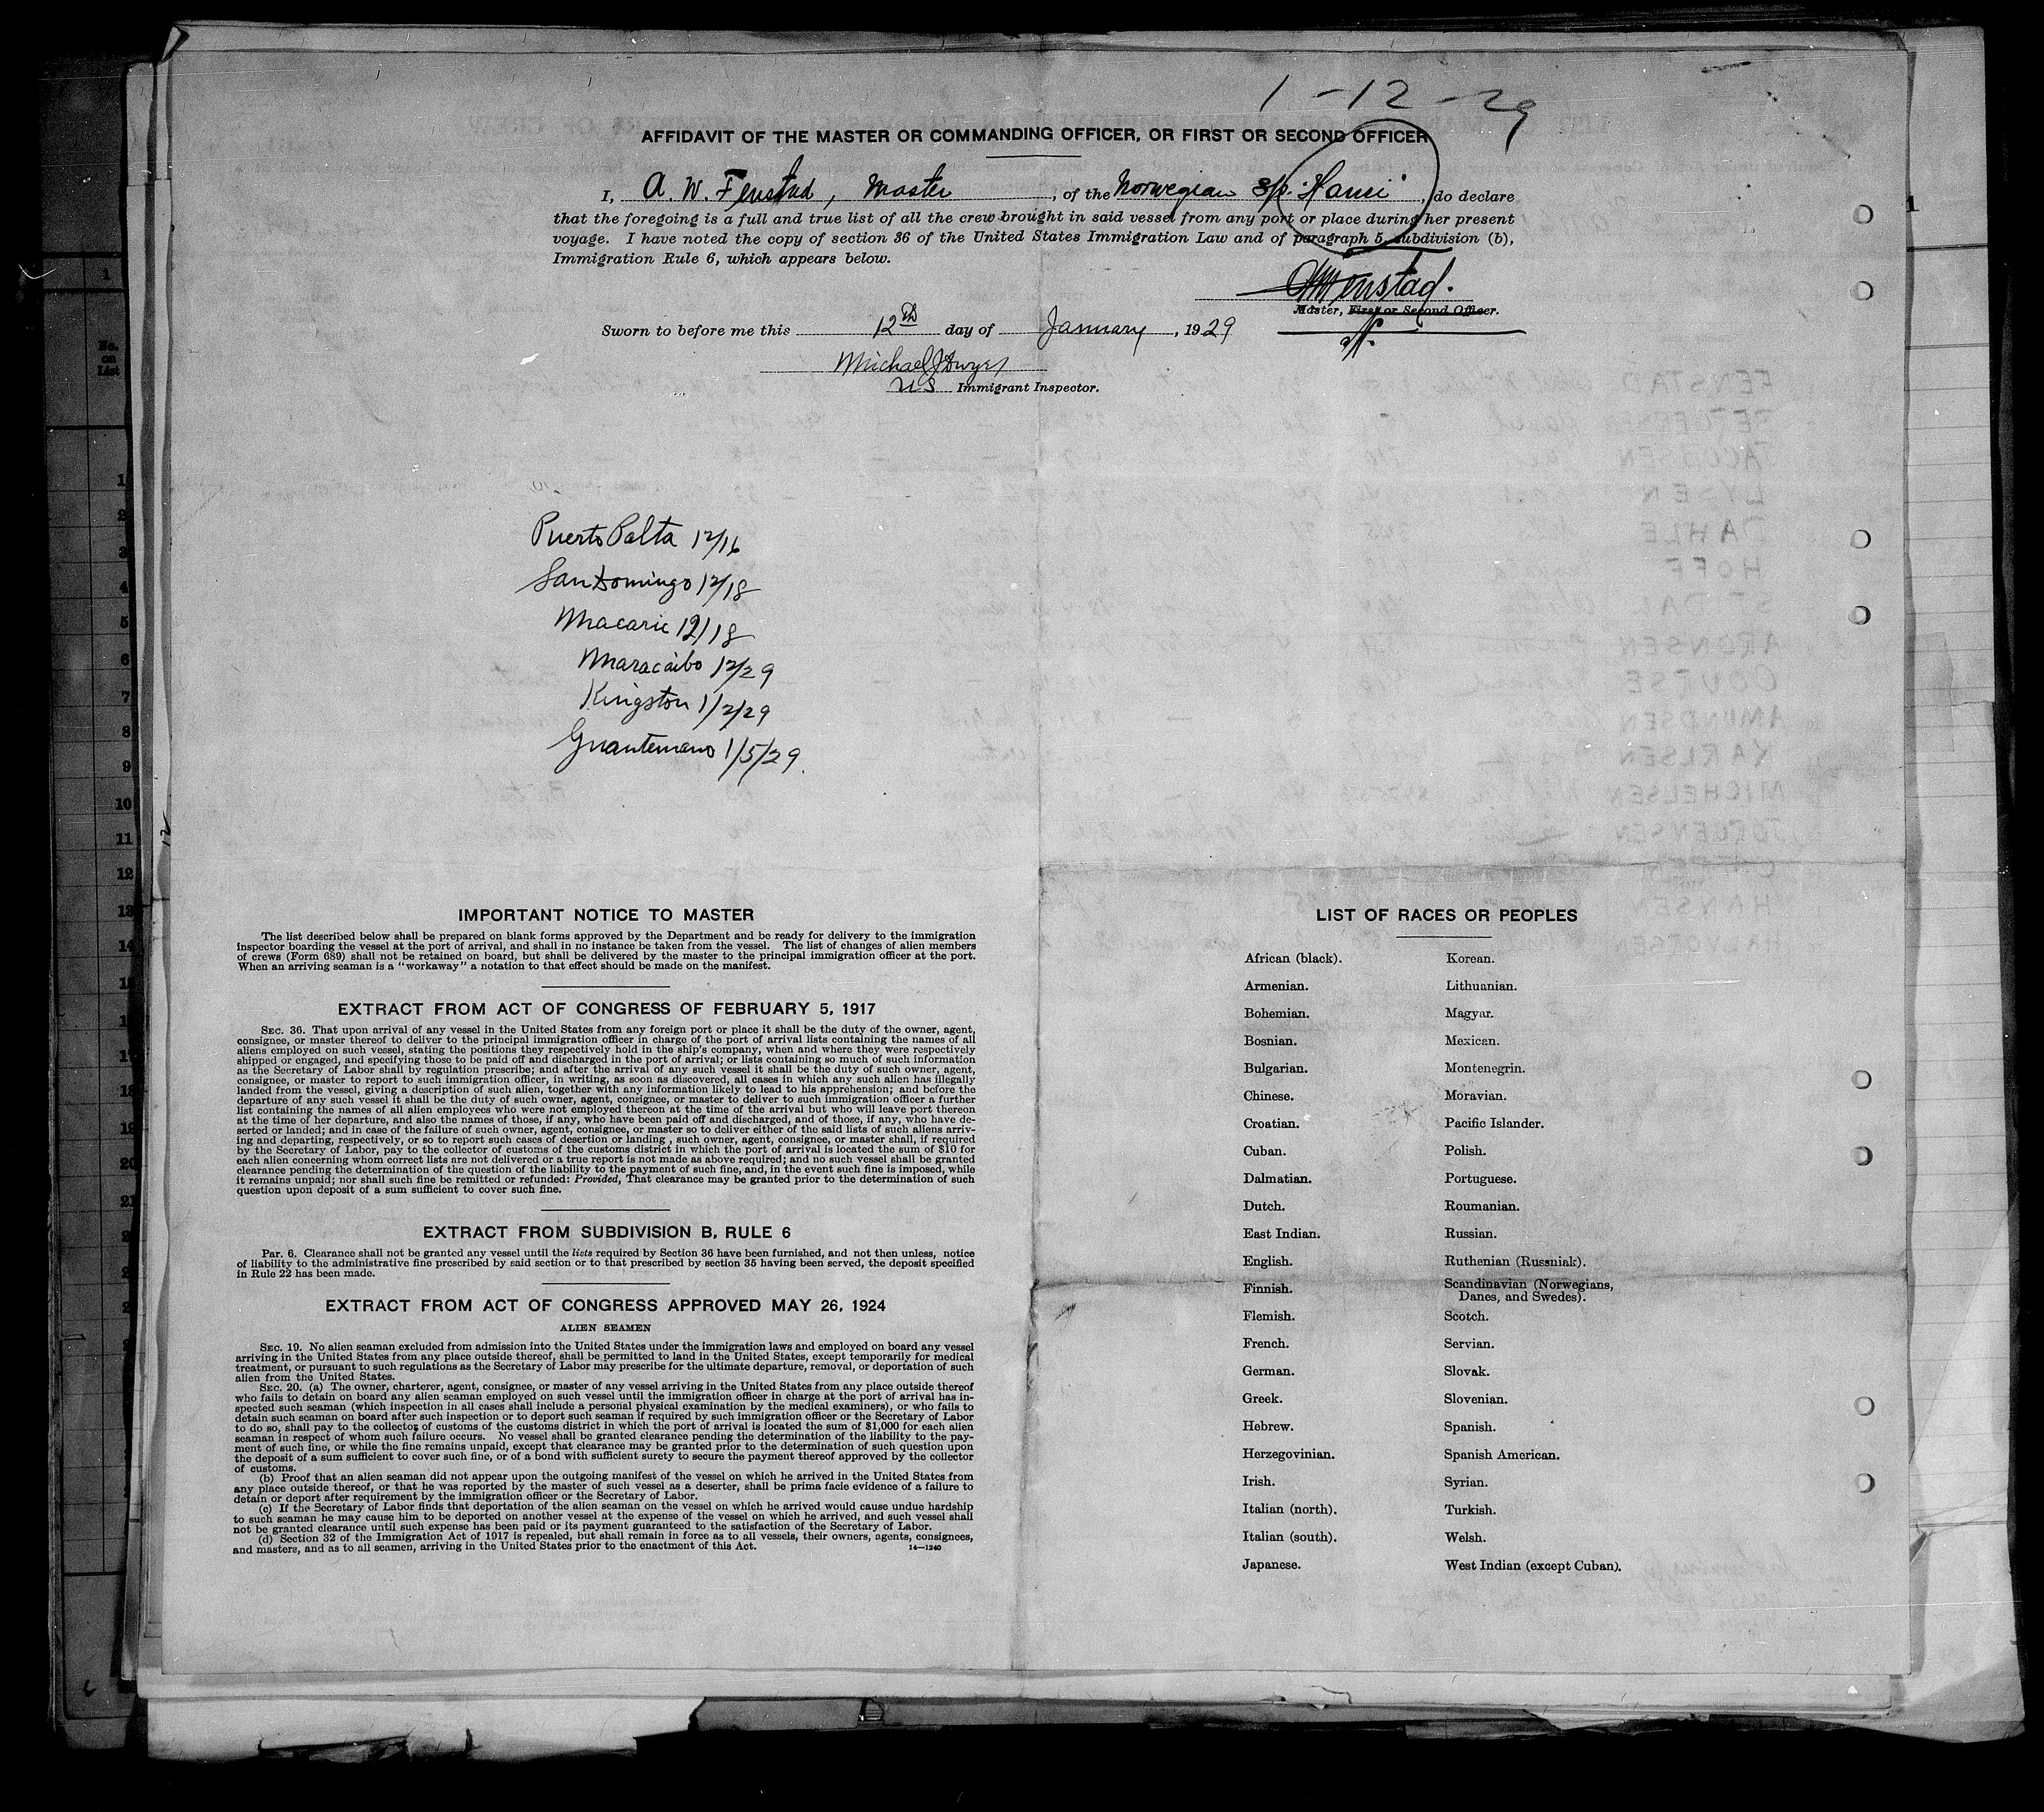 1-12-29
AFFIDAVIT OF THE MASTER OR COMMANDING OFFICER, OR FIRST OR SECOND OFFICER
I, A. W. Fenstad, Master, of the Norwegian S/S. "Hansi", do declare
that the foregoing is a full and true list of all the crew brought in said vessel from any port or place during her present
voyage. I have noted the copy of section 36 of the United States Immigration Law and of paragraph 5, subdivision (b),
Immigration Rule 6, which appears below.
AWFenstad.
Master, First or Second Officer.
Sworn to before me this 12th day of January, 1929
Michael J Dwyer
US Immigrant Inspector.
Puerto Palta 12/16
San Domingo 12/18
Macaric 12/18
Maracaibo 12/29
Kingston 1/2/29
Guantemano 1/5/29.
IMPORTANT NOTICE TO MASTER
The list described below shall be prepared on blank forms approved by the Department and be ready for delivery to the immigration
inspector boarding the vessel at the port of arrival, and shall in no instance be taken from the vessel. The list of changes of alien members
of crews (Form 689) shall not be retained on board, but shall be delivered by the master to the principal immigration officer at the port.
When an arriving seaman is a "workaway" a notation to that effect should be made on the manifest.
EXTRACT FROM ACT OF CONGRESS OF FEBRUARY 5, 1917
SEC. 36. That upon arrival of any vessel in the United States from any foreign port or place it shall be the duty of the owner, agent,
consignee, or master thereof to deliver to the principal immigration officer in charge of the port of arrival lists containing the names of all
aliens employed on such vessel, stating the positions they respectively hold in the ship's company, when and where they were respectively
shipped or engaged, and specifying those to be paid off and discharged in the port of arrival; or lists containing so much of such information
as the Secretary of Labor shall by regulation prescribe; and after the arrival of any such vessel it shall be the duty of such owner, agent,
consignee, or master to report to such immigration officer, in writing, as soon as discovered, all cases in which any such alien has illegally
landed from the vessel, giving a description of such alien, together with any information likely to lead to his apprehension; and before the
departure of any such vessel it shall be the duty of such owner, agent, consignee, or master to deliver to such immigration officer a further
list containing the names of all alien employees who were not employed thereon at the time of the arrival but who will leave port thereon
at the time of her departure, and also the names of those, if any, who have been paid off and discharged, and of those, if any, who have de-
serted or landed; and in case of the failure of such owner, agent, consignee, or master so to deliver either of the said lists of such aliens arriv-
ing and departing, respectively, or so to report such cases of desertion or landing, such owner, agent, consignee, or master shall, if required
by the Secretary of Labor, pay to the collector of customs of the customs district in which the port of arrival is located the sum of $10 for
each alien concerning whom correct lists are not delivered or a true report is not made as above required; and no such vessel shall be granted
clearance pending the determination of the question of the liability to the payment of such fine, and, in the event such fine is imposed, while
it remains unpaid; nor shall such fine be remitted or refunded: Provided, That clearance may be granted prior to the determination of such
question upon deposit of a sum sufficient to cover such fine.
EXTRACT FROM SUBDIVISION B, RULE 6
Par. 6. Clearance shall not be granted any vessel until the lists required by Section 36 have been furnished, and not then unless, notice
of liability to the administrative fine prescribed by said section or to that prescribed by section 35 having been served, the deposit specified
in Rule 22 has been made.
EXTRACT FROM ACT OF CONGRESS APPROVED MAY 26, 1924
ALIEN SEAMEN
SEC. 19. No alien seaman excluded from admission into the United States under the immigration laws and employed on board any vessel
arriving in the United States from any place outside thereof, shall be permitted to land in the United States, except temporarily for medical
treatment, or pursuant to such regulations as the Secretary of Labor may prescribe for the ultimate departure, removal, or deportation of such
alien from the United States.
SEC. 20. (a) The owner, charterer, agent, consignee, or master of any vessel arriving in the United States from any place outside thereof
who fails to detain on board any alien seaman employed on such vessel until the immigration officer in charge at the port of arrival has in-
spected such seaman (which inspection in all cases shall include a personal physical examination by the medical examiners), or who fails to
detain such seaman on board after such inspection or to deport such seaman if required by such immigration officer or the Secretary of Labor
to do so, shall pay to the collector of customs of the customs district in which the port of arrival is located the sum of $1,000 for each alien
seaman in respect of whom such failure occurs. No vessel shall be granted clearance pending the determination of the liability to the pay-
ment of such fine, or while the fine remains unpaid, except that clearance may be granted prior to the determination of such question upon
the deposit of a sum sufficient to cover such fine, or of a bond with sufficient surety to secure the payment thereof approved by the collector
of customs.
(b) Proof that an alien seaman did not appear upon the outgoing manifest of the vessel on which he arrived in the United States from
any place outside thereof, or that he was reported by the master of such vessel as a deserter, shall be prima facie evidence of a failure to
detain or deport after requirement by the immigration officer or the Secretary of Labor.
(c) If the Secretary of Labor finds that deportation of the alien seaman on the vessel on which he arrived would cause undue hardship
to such seaman he may cause him to be deported on another vessel at the expense of the vessel on which he arrived, and such vessel shall
not be granted clearance until such expense has been paid or its payment guaranteed to the satisfaction of the Secretary of Labor.
(d) Section 32 of the Immigration Act of 1917 is repealed, but shall remain in force as to all vessels, their owners, agents, consignees,
and masters, and as to all seamen, arriving in the United States prior to the enactment of this Act.
14—1240
LIST OF RACES OR PEOPLES
African (black). Korean.
Armenian. Lithuanian.
Bohemian. Magyar.
Bosnian. Mexican.
Bulgarian. Montenegrin.
Chinese. Moravian.
Croatian. Pacific Islander.
Cuban. Polish.
Dalmatian. Portuguese.
Dutch. Roumanian.
East Indian. Russian.
English. Ruthenian (Russniak).
Finnish. Scandinavian (Norwegians,
Danes, and Swedes).
Flemish. Scotch.
French. Servian.
German. Slovak.
Greek. Slovenian.
Hebrew. Spanish.
Herzegovinian. Spanish American.
Irish. Syrian.
Italian (north). Turkish.
Italian (south). Welsh.
Japanese. West Indian (except Cuban).